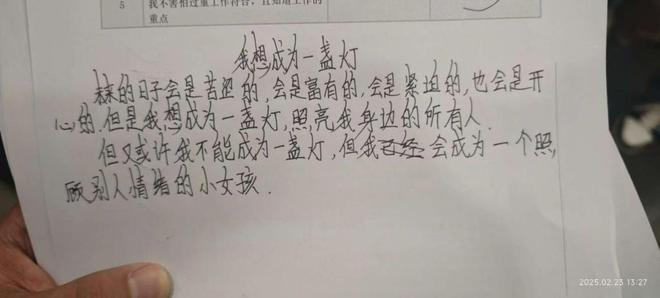 5 我不害怕过重工作符合,且知道工作的
重点
我想成为一盏灯
的日子会是苦涩的,会是富有的,会是紧迫的,也会是开
心的.但是我想成为一盏灯,照亮我身边的所有人.
但又或许我不能成为一盏灯,但我已经会成为一个照,
顾别人情绪的小女孩.
2025.02.23 13:27